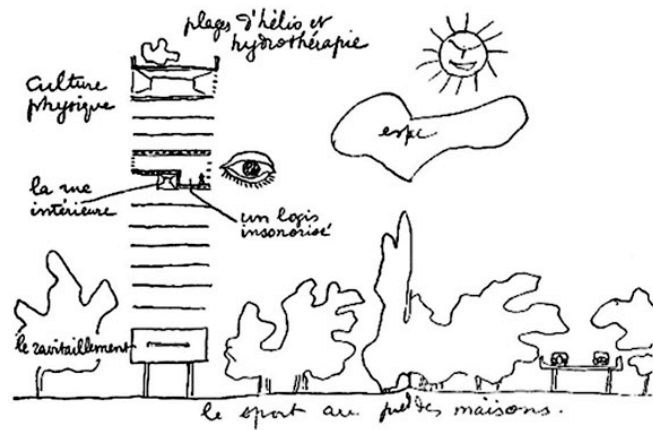 plages d'hélio et
hydrothérapie
culture
physique
la rue
intérieure
un logis
insonorisé
le ravitaillement
le sport au pied des maisons.